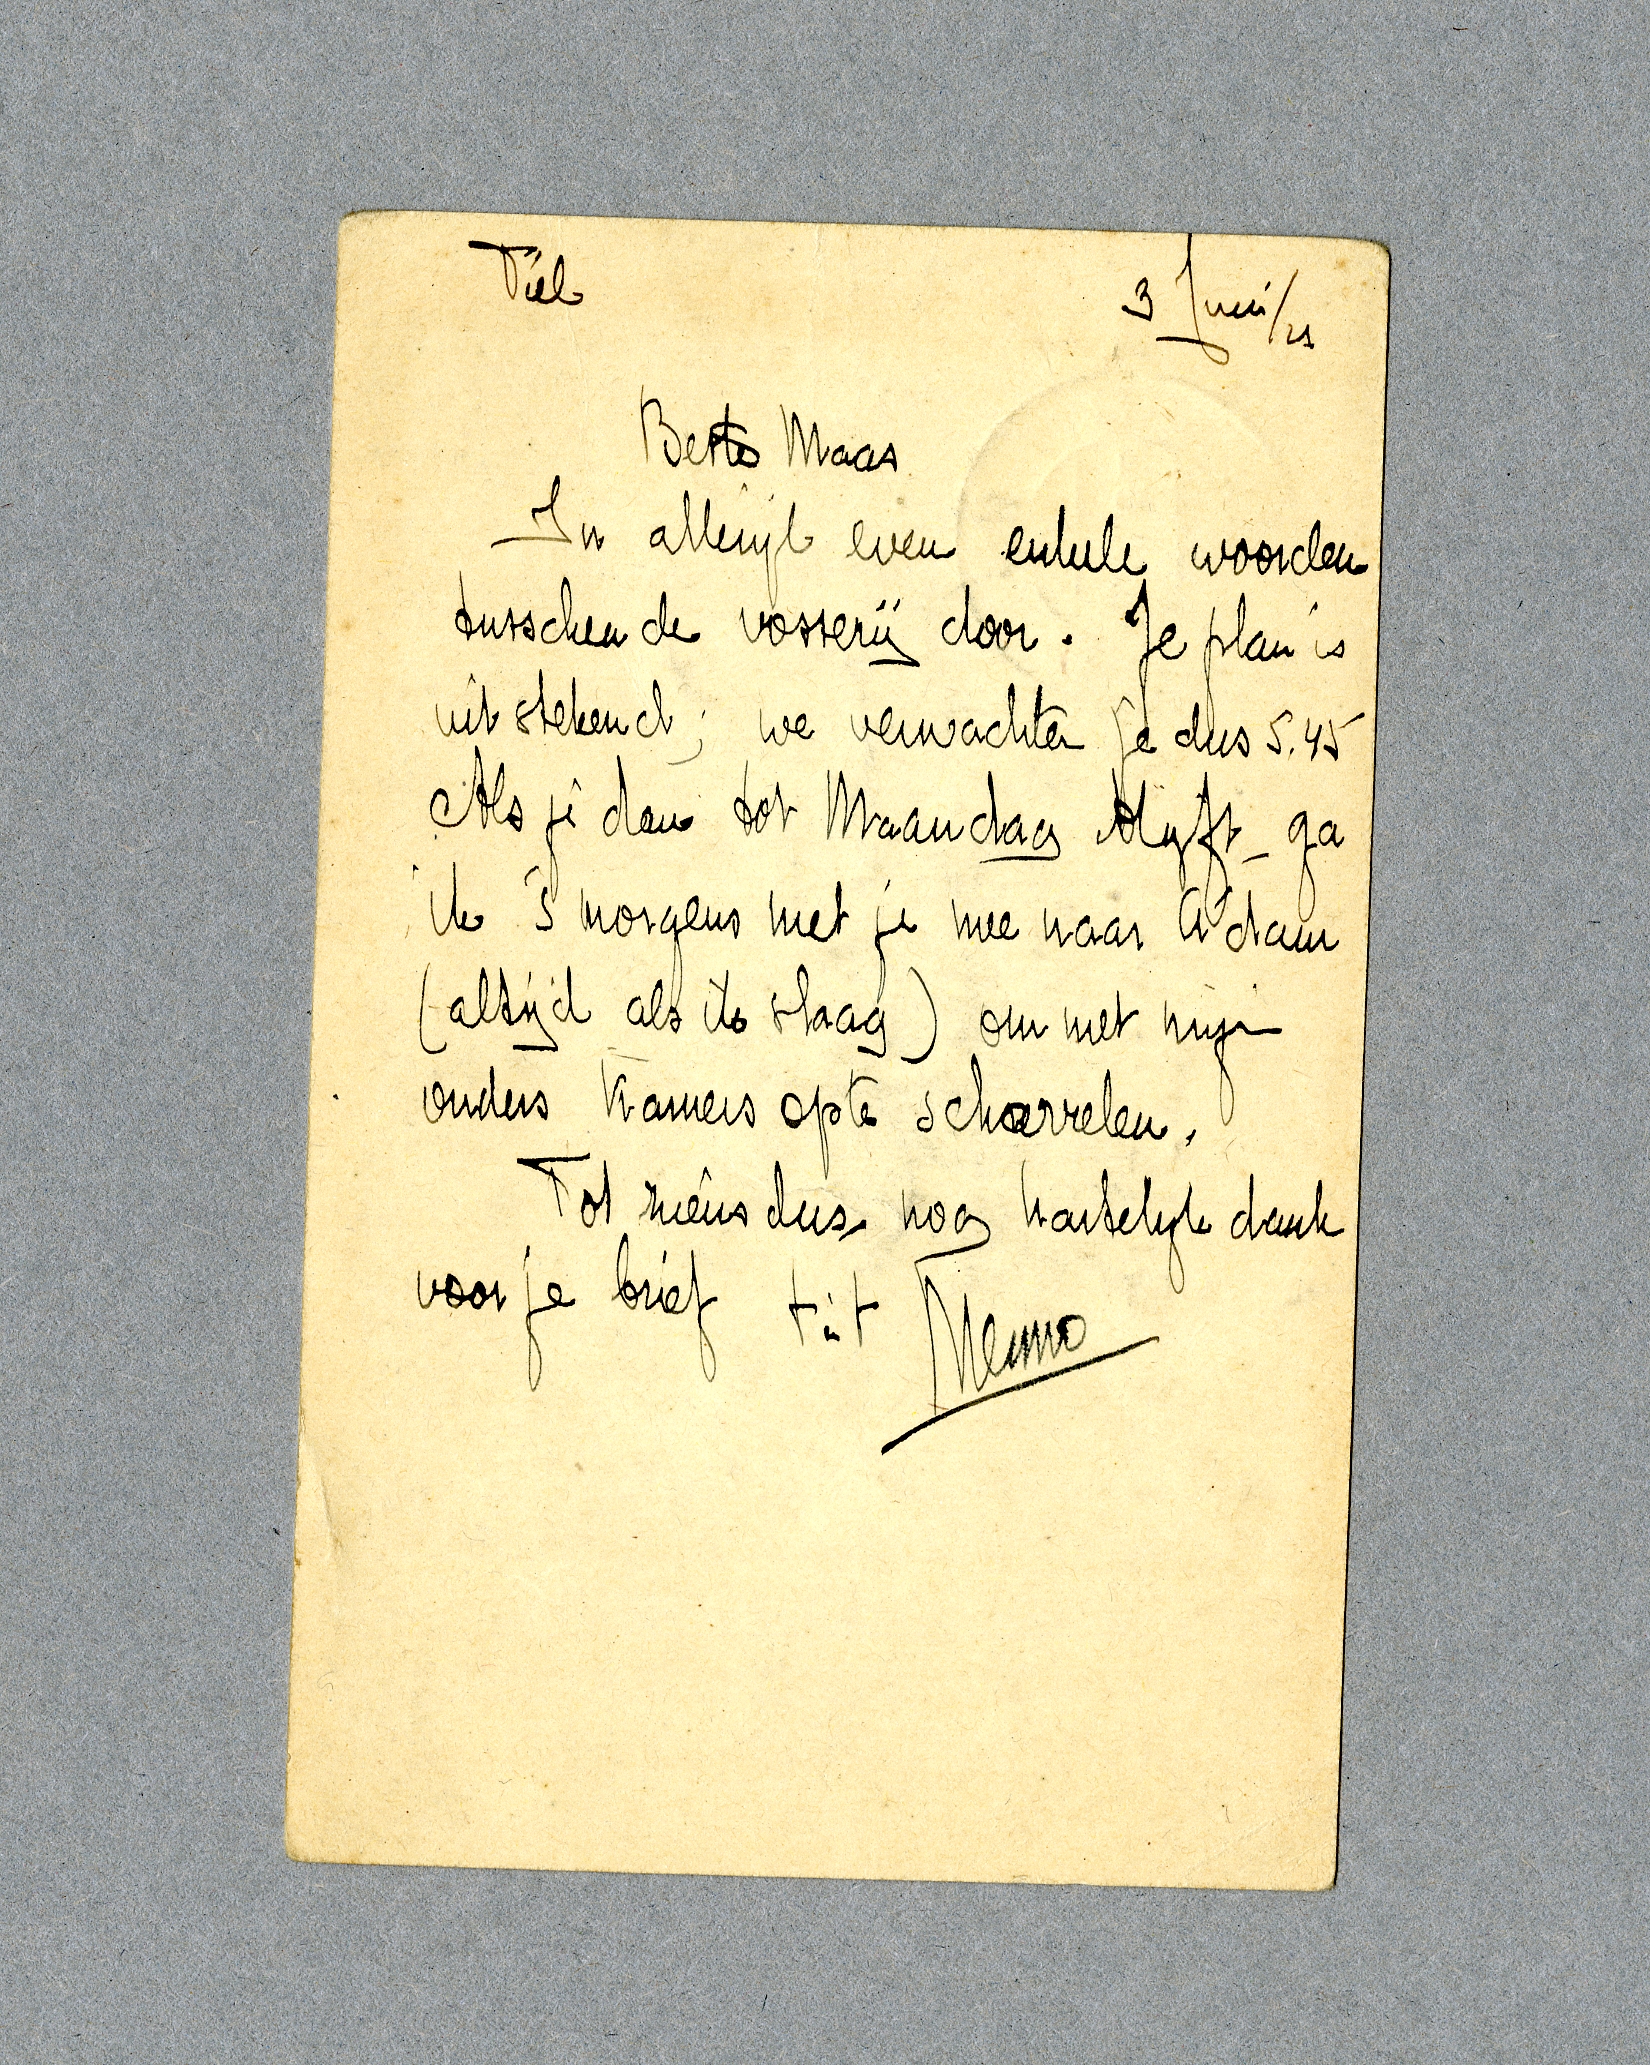 Tiel 3 Juni/21
Beste Maas
In allerijl even enkele woorden
tusschen de vosserij door. Je plan is
uitstekend; we verwachten je dus 5.45
Als je dan tot Maandag blijft ga
ik 's morgens met je mee naar A'dam
(altijd als ik slaag) om met mijn
ouders kamers op te scharrelen.
Tot ziens dus nog hartelijk dank
voor je brief t.à.t. Menno